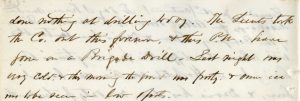 done nothing at drilling today. The Lieuts took
the Co. out this forenoon & this P.M. have
gone on a Brigade Drill. Last night was
very cold & this morning the ground was frosty & some ice
was to be seen in low spots.